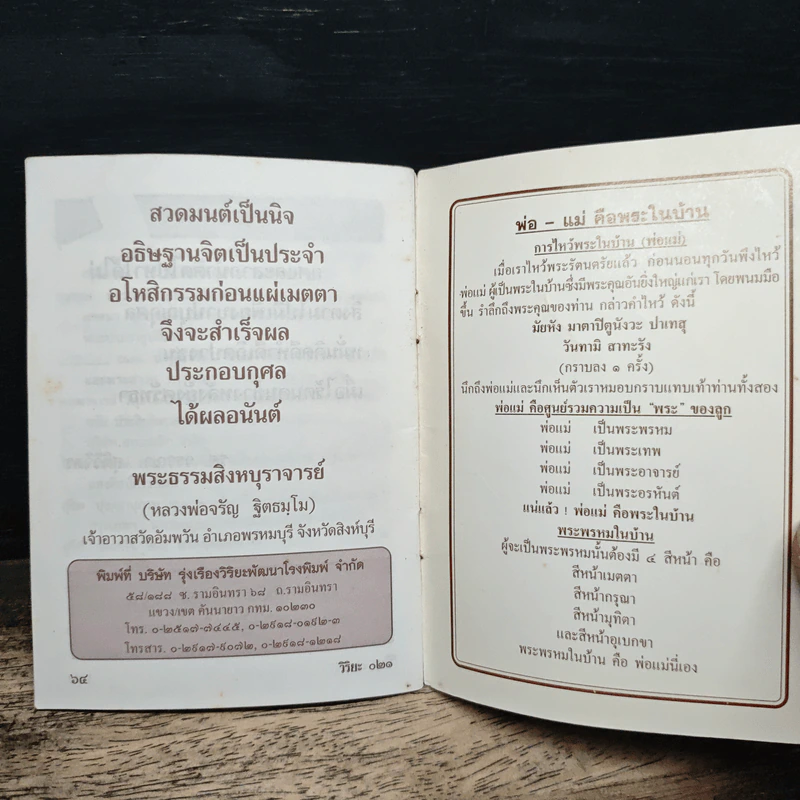 สวดมนต์เป็นนิจ
อธิษฐานจิตเป็นประจำ
อโหสิกรรมก่อนแผ่เมตตา
จึงจะสำเร็จผล
ประกอบกุศล
ได้ผลอนันต์
พระธรรมสิงหบุราจารย์
(หลวงพ่อจรัญ ฐิตธมฺโม)
เจ้าอาวาสวัดอัมพวัน อำเภอพรหมบุรี จังหวัดสิงห์บุรี
พิมพ์ที่ บริษัท รุ่งเรืองวิริยะพัฒนาโรงพิมพ์ จำกัด
๕๘/๑๘๘ ซ. รามอินทรา ๖๘ ถ.รามอินทรา
แขวง/เขต คันนายาว กทม. ๑๐๒๓๐
โทร. ๐-๒๕๑๗-๗๔๔๕, ๐-๒๙๑๘-๐๑๙๒-๓
โทรสาร. ๐-๒๙๑๗-๙๐๗๒, ๐-๒๙๑๘-๑๒๑๘
๖๔ วิริยะ ๐๒๑
พ่อ - แม่ คือพระในบ้าน
การไหว้พระในบ้าน (พ่อแม่)
เมื่อเราไหว้พระรัตนตรัยแล้ว ก่อนนอนทุกวันพึงไหว้
พ่อแม่ ผู้เป็นพระในบ้านซึ่งมีพระคุณอันยิ่งใหญ่แก่เรา โดยพนมมือ
ขึ้น รำลึกถึงพระคุณของท่าน กล่าวคำไหว้ ดังนี้
มัยหัง มาตาปิตูนังวะ ปาเทสุ
วันทามิ สาทะรัง
(กราบลง ๑ ครั้ง)
นึกถึงพ่อแม่และนึกเห็นตัวเราหมอบกราบแทบเท้าท่านทั้งสอง
พ่อแม่ คือศูนย์รวมความเป็น "พระ" ของลูก
พ่อแม่ เป็นพระพรหม
พ่อแม่ เป็นพระเทพ
พ่อแม่ เป็นพระอาจารย์
พ่อแม่ เป็นพระอรหันต์
แน่แล้ว ! พ่อแม่ คือพระในบ้าน
พระพรหมในบ้าน
ผู้จะเป็นพระพรหมนั้นต้องมี ๔ สีหน้า คือ
สีหน้าเมตตา
สีหน้ากรุณา
สีหน้ามุทิตา
และสีหน้าอุเบกขา
พระพรหมในบ้าน คือ พ่อแม่นี่เอง